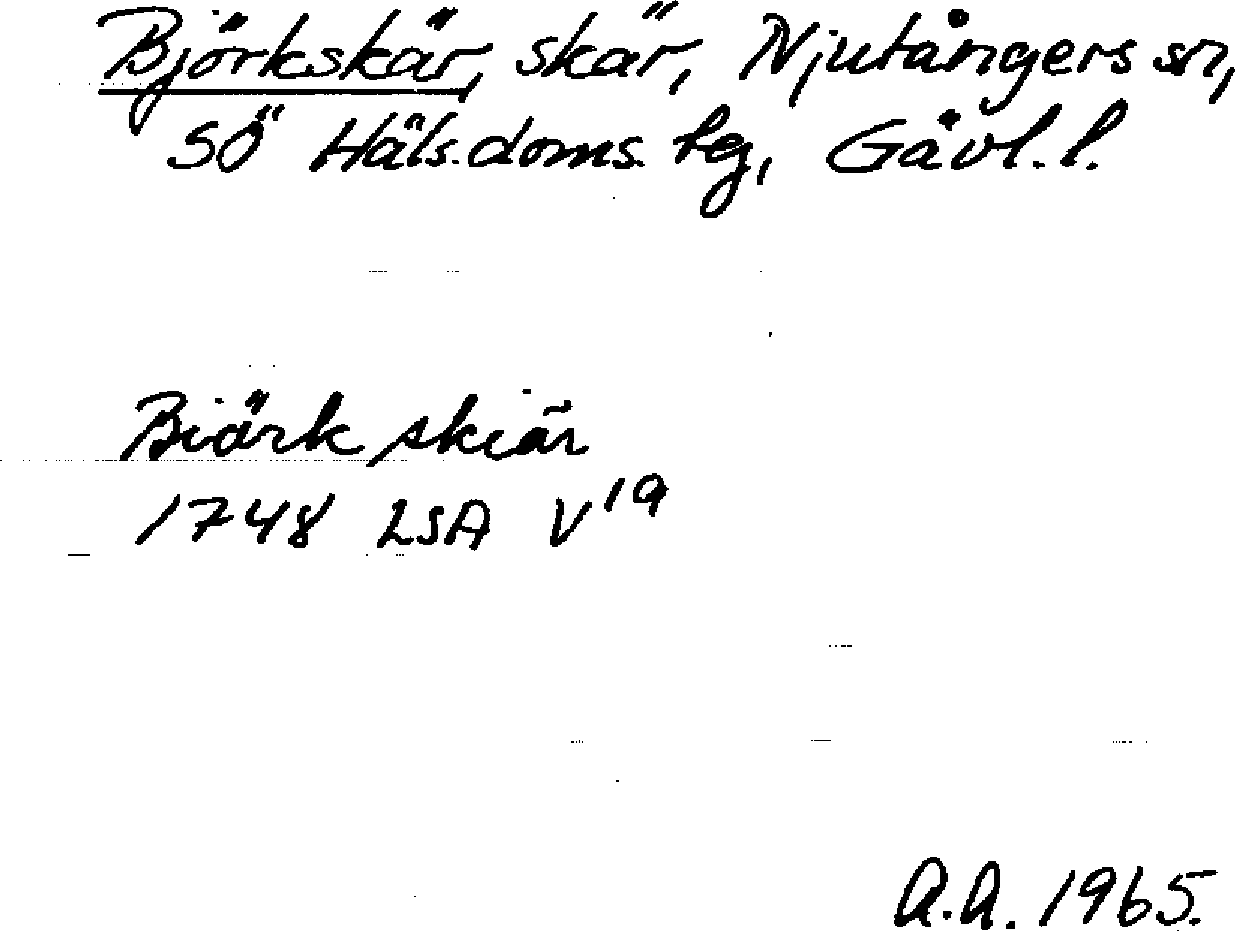 Björkskär, skär, Njutångers sn,
SÖ Häls. doms. hg, Gävl. l.
Biörk skiär
1748 LSA V19
A.A. 1965.